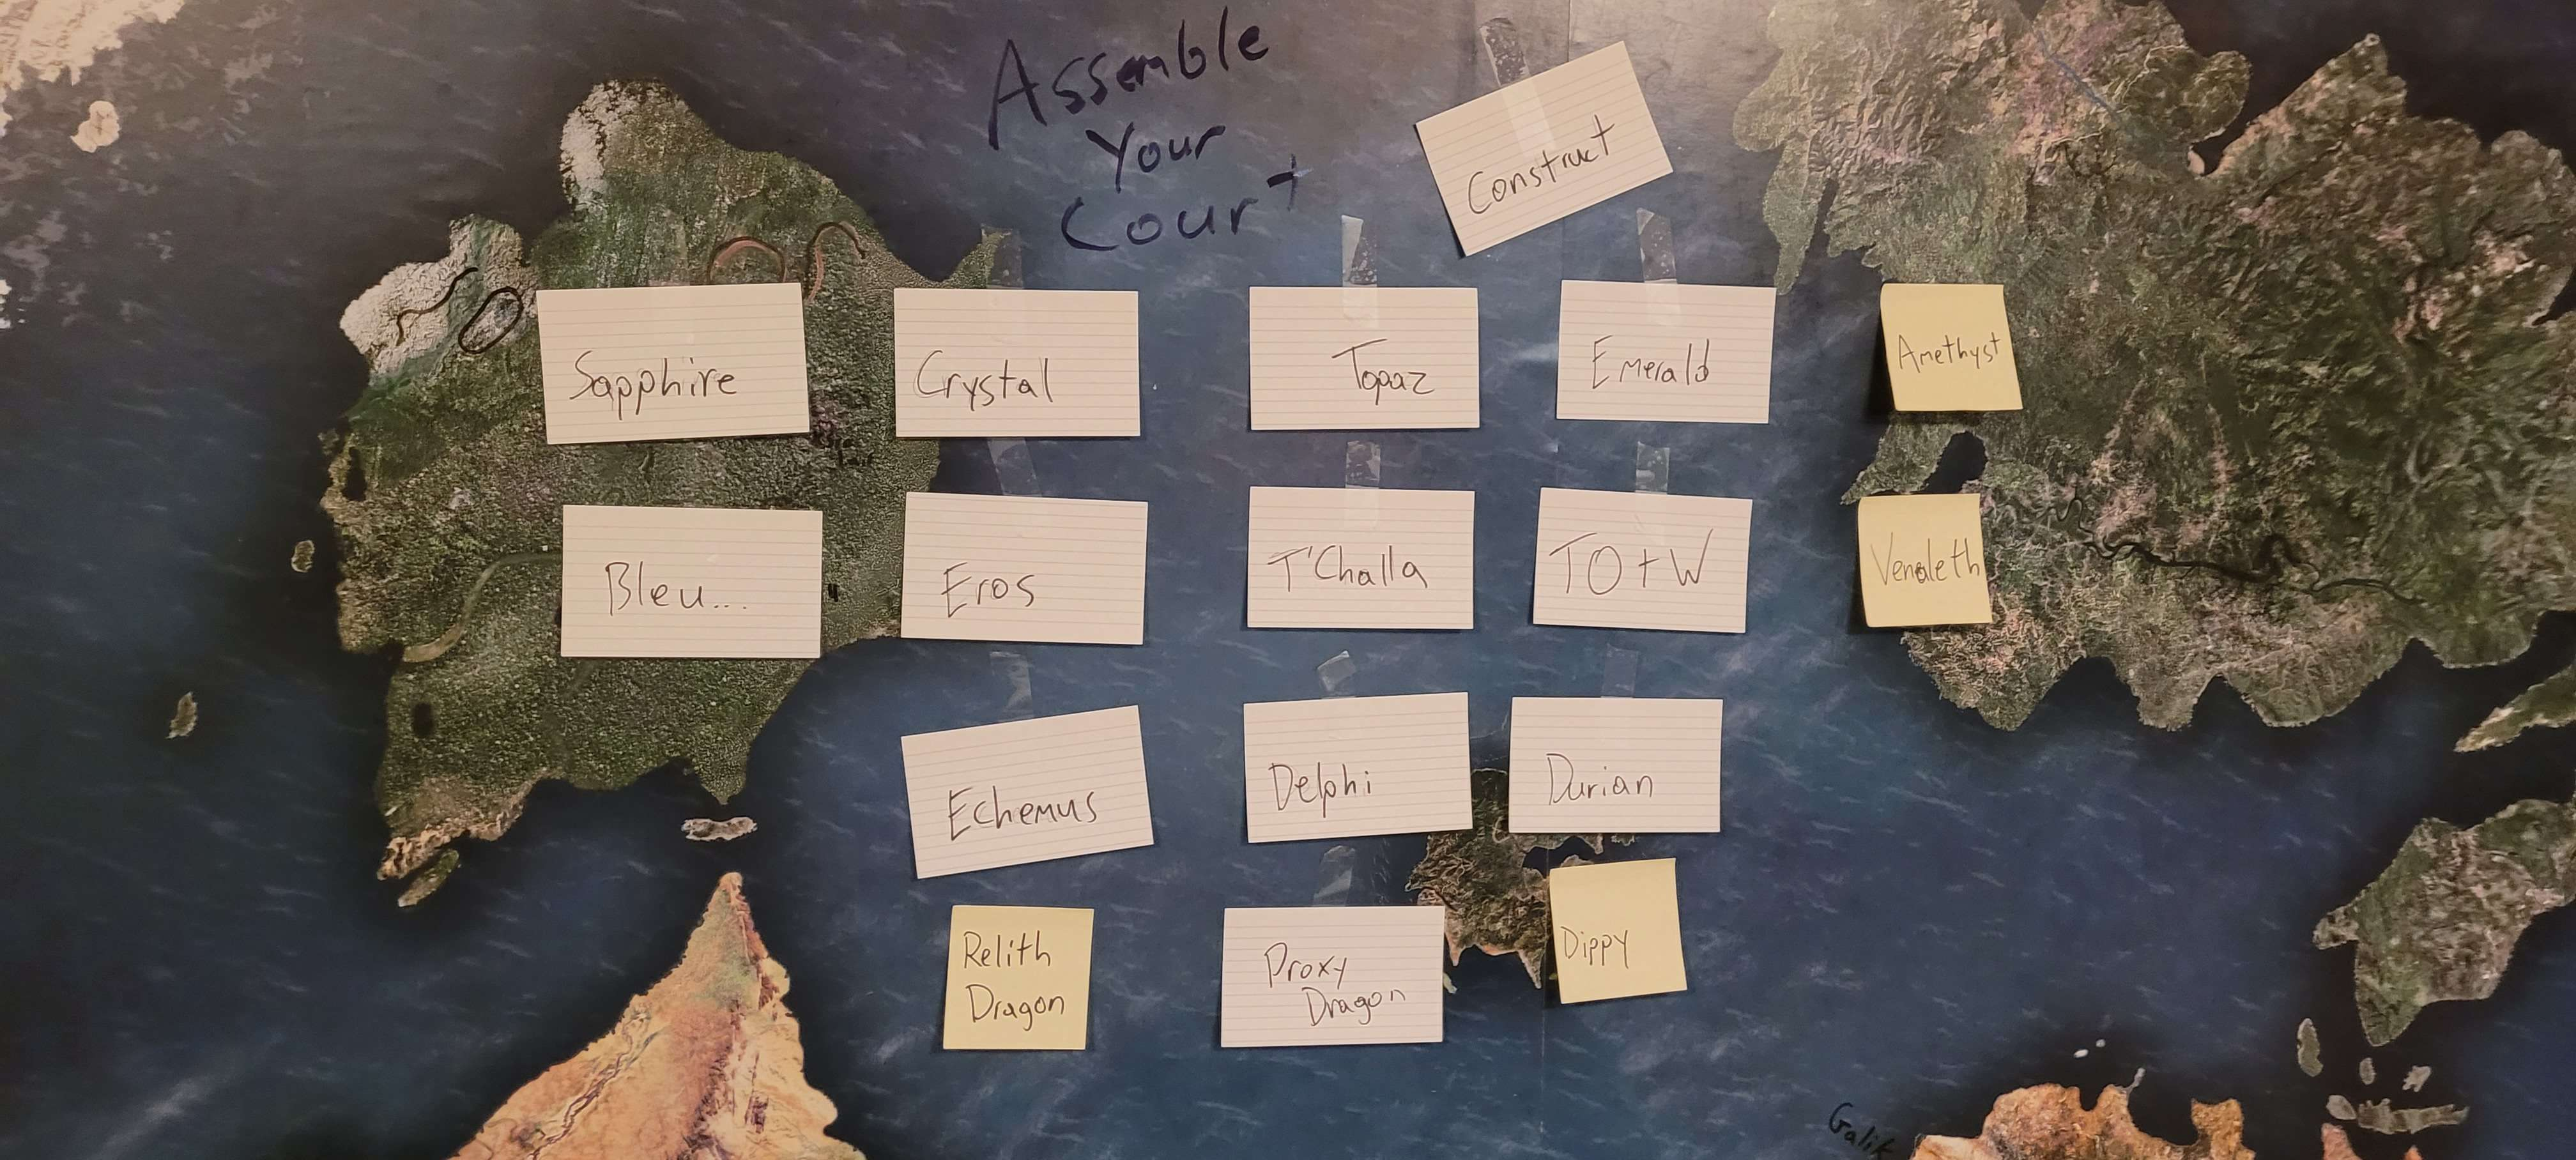 Assemble
Your
Court
Construct
Sapphire
Crystal
Topaz
Emerald
Amethyst
Bleu...
Eros
T'Challa
TO+W
Venaleth
Echemus
Delphi
Durian
Relith
Dragon
Proxy
Dragon
Dippy
Galik